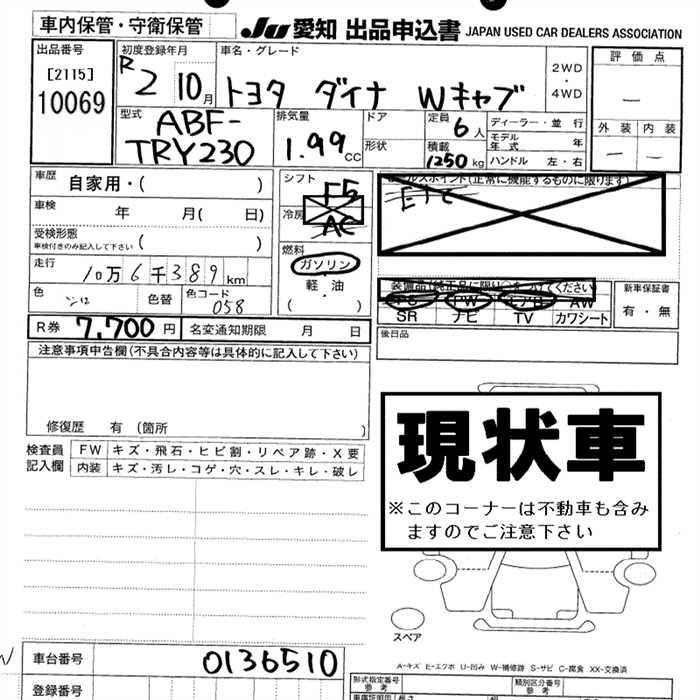 車内保管・守衛保管
JU 愛知 出品申込書 JAPAN USED CAR DEALERS ASSOCIATION
出品番号
[2115]
10069
初度登録年月
R2 10月
車名・グレード
トヨタ ダイナ Wキャブ
2WD
・
4WD
評価点
—
外装 内装
— —
型式
ABF-
TRY230
排気量
1.99cc
ドア
形状
定員 6人
積載 1250kg
ディーラー・並行
モデル年式 年
ハンドル 左・右
車歴 自家用・( )
車検 年 月( 日)
受検形態
車検付きのみ記入して下さい ( )
走行 10万6千389km
色 色替 色コード 058
R券 7,700円 名変通知期限 月 日
シフト F5
冷房 AC
燃料
ガソリン
・
軽油
( )
セールスポイント(正常に機能するものに限ります)
装備品(純正品に限り○をつけてください)
PS PW AW
SR ナビ TV カワシート
新車保証書
有・無
後日品
注意事項申告欄(不具合内容等は具体的に記入して下さい)
修復歴 有(箇所 )
検査員
記入欄
FW キズ・飛石・ヒビ割・リペア跡・X要
内装 キズ・汚レ・コゲ・穴・スレ・キレ・破レ
現状車
※このコーナーは不動車も含み
ますのでご注意下さい
スペア
A-キズ E-エクボ U-凹み W-補修跡 S-サビ C-腐食 XX-交換済
車台番号 0136510
登録番号
形式指定番号
参考
類別区分番号
参考